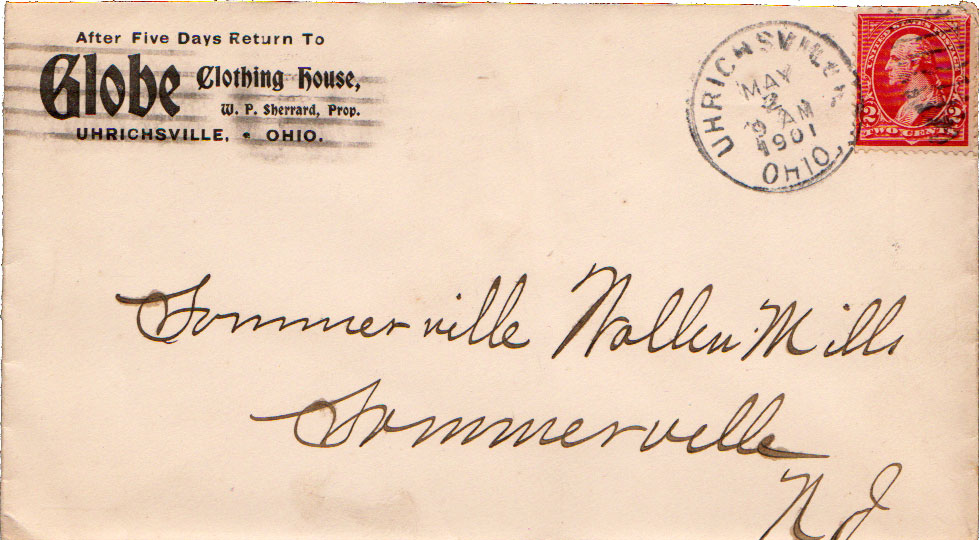 After Five Days Return To
Globe Clothing House,
W. P. Sherrard, Prop.
UHRICHSVILLE, • OHIO.
UHRICHSVILLE
MAY
AM
1901
OHIO.
UNITED STATES POSTAGE
2 2
TWO CENTS
Sommerville Wollen Mills
Sommerville
N J